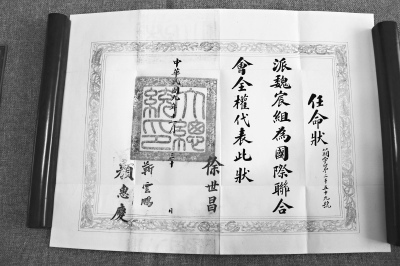 任命狀
簡字第二千五十九號
派魏宸組為國際聯合
會全權代表此狀
徐世昌
大總統印
中華民國九年
日
靳雲鵬
顏惠慶